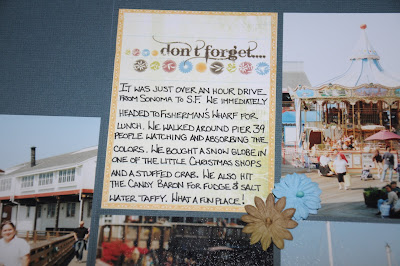 don't forget...
It was just over an hour drive
from Sonoma to S.F. We immediately
headed to Fisherman's Wharf for
lunch. We walked around Pier 39
people watching and absorbing the
colors. We bought a snow globe in
one of the little Christmas shops
and a stuffed crab. We also hit
the Candy Baron for fudge & salt
water taffy. What a fun place!